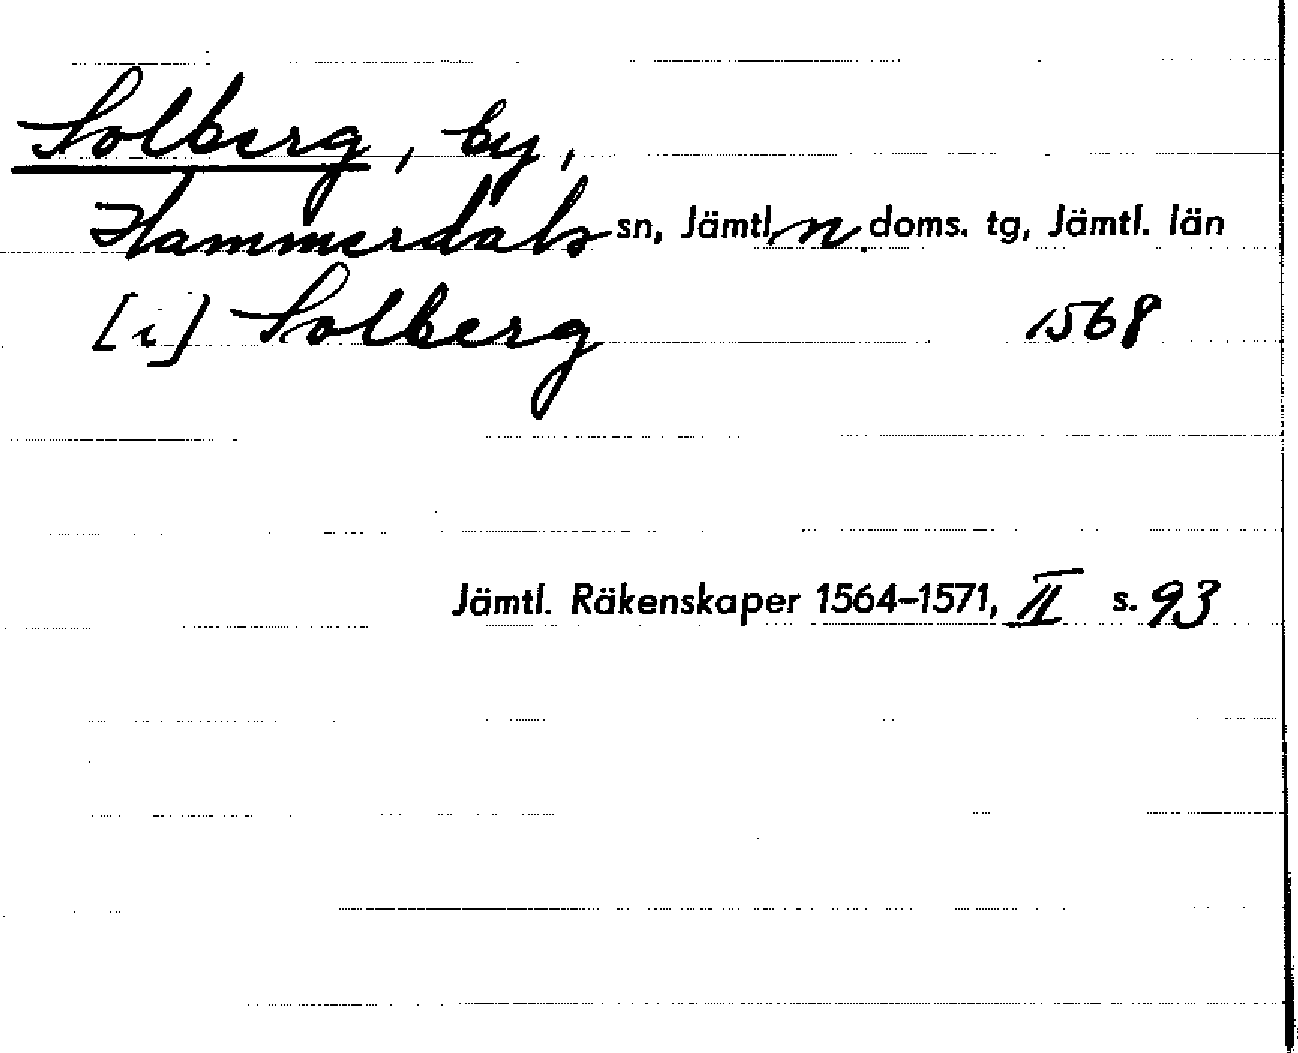 Solberg, by,
Hammerdals sn, Jämtl. n. doms. tg, Jämtl. län
[i] Solberg 1568
Jämtl. Räkenskaper 1564–1571, II s. 93